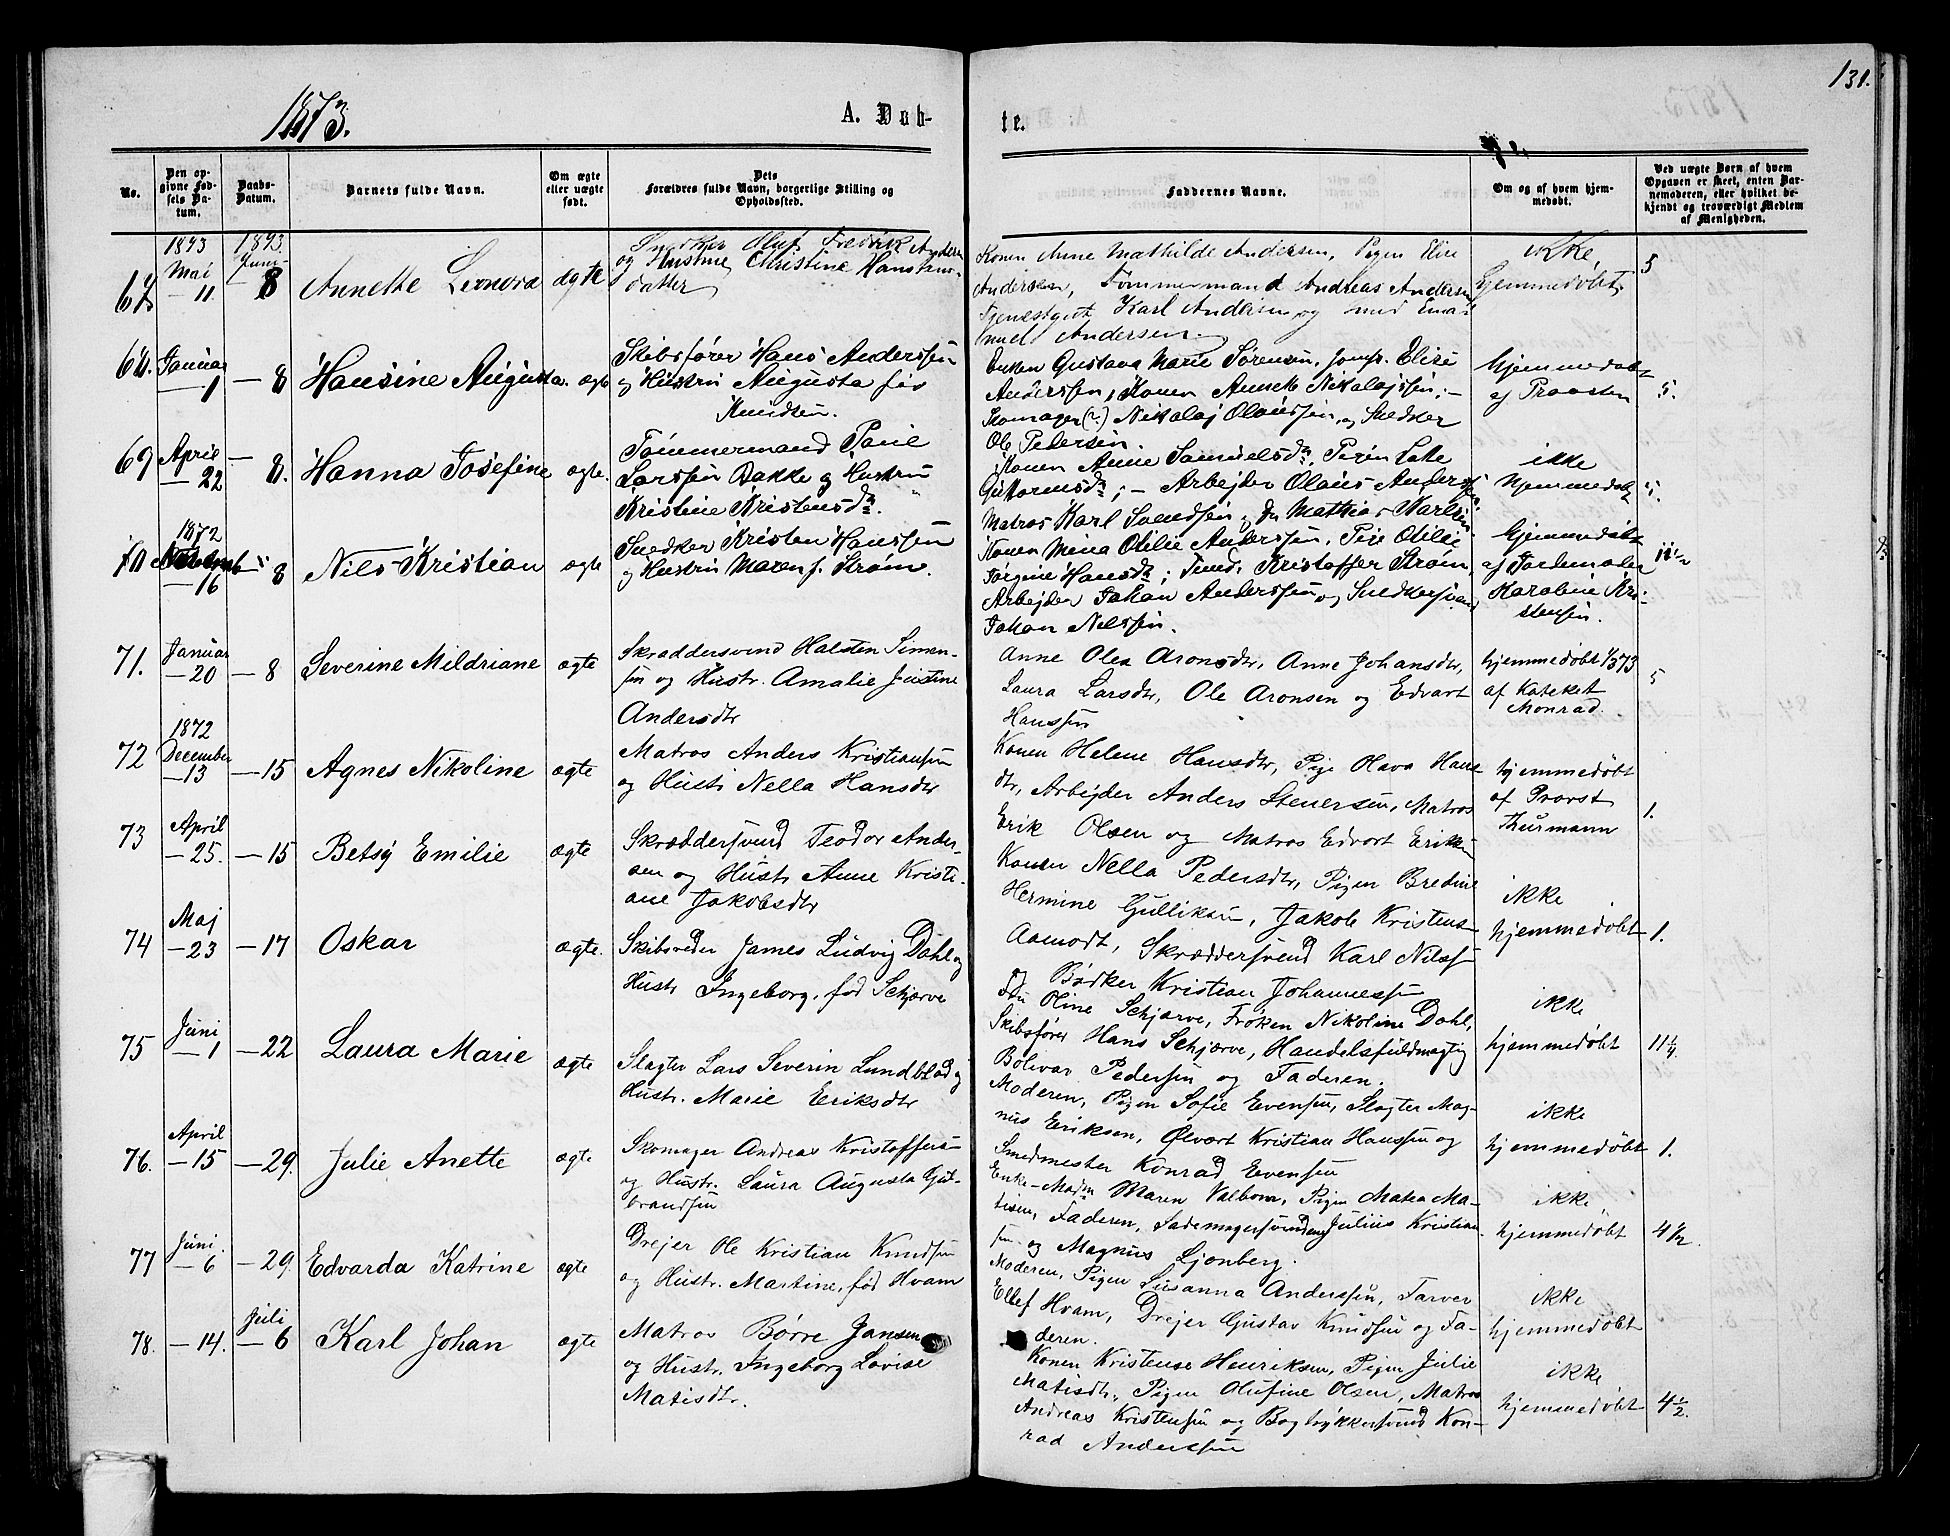 131.
1873.
A. Døb-
te.
No.
Den op-
givne Fød-
sels Da-
tum.
Daabs-
Datum.
Barnets fulde Navn.
Om ægte
eller uægte
født.
Dets
Forældres fulde Navn, borgerlige Stilling og
Opholdssted.
Faddernes Navne.
Om og af hvem hjem-
medøbt.
Ved uægte Børn af hvem
Opgaven er skeet, enten Bar-
nemoderen, eller hvilket be-
kjendt og troværdigt Medlem
af Menigheden.
67
1873
Mai
— 11.
1873
Juni
— 8
Annette Leonora
ægte
Snedker Oluf Fredrik Andersen
og Hustrue Christine Hans
datter
Konen Anne Mathilde Andersen, Pigen Elise
Andersen, Tømmermand Andreas Andersen
Tjenestgut Karl Andersen og
nuel Andersen.
ikke
hjemmedøbt
5
68.
Januar
— 1
— 8
Hansine Augusta.
ægte
Skibsfører Hans Anderssen
og Hustru Augusta fød
Knudsen.
Enken Gustava Marie Sørensen, Jomfr. Elise
Anderssen, Konen Annette Nikolajsen; —
Skomager (?) Nikolaj Olaussen, og Snedker
Ole Pedersen.
hjemmedøbt
af Provsten
5.
69
April
— 22
— 8.
Hanna Josefine
ægte.
Tømmermand Paul
Larssen Bakke og Hustru
Kristine Kristensdr.
Konen Anne Samuelsdr, Pigen Late
Guttormsdr; — Arbejder Olaus Anderssen
Matros Karl Svendsen og Do Mathias Karlsen
ikke
hjemmedøbt
5.
70
1872
Novemb
— 16
— 8
Nils Kristian
ægte
Snedker Kristen Hanssen
og Hustru Maren f. Strøm.
Konen Mina Otilie Anderssen, Pige Otilie
Jørgine Hansdr; Kristoffer Strøm,
Arbejder Johan Anderssen og Snedkersvend
Johan Nilssen.
hjemmedøbt
af Jordemoder
Karoline Kri-
stensen.
11½
71.
Januar
— 20
— 8
Severine Mildriane
ægte
Skræddersvend Halsten Simen-
sen og Hustr. Amalie Justine
Andersdtr
Anne Olea Aronsdtr, Anne Johansdtr,
Laura Larsdtr, Ole Aronsen og Edvart
Hanssen
hjemmedøbt 1/3 73
af Kateket
Monrad.
5
72
1872
December
— 13
— 15
Agnes Nikoline
ægte
Matros Anders Kristiansen
og Hustr Nella Hansdtr
Konen Helene Hansdtr, Pige Olava Hans
dtr, Arbejder Anders Stenersen, Matros
Erik Olsen og Matros Edvart Eriksen
hjemmedøbt
af Provst
Thurmann
1.
73
April
— 25.
— 15
Betsy Emilie
ægte
Skræddersvend Teodor Ander-
sen og Hustr Anne Kristi-
ane Jakobsdtr
Konen Nella Pedersdtr, Pigen Bredine
Hermine Gulliksen, Jakob Kristens
Aamodt, Skræddersvend Karl Nilssen
og Bødker Kristian Johannessen
ikke
hjemmedøbt
1.
74
Maj
— 23
— 17
Oskar
ægte.
Skibsreder James Ludvig Dahl og
Hustr Ingeborg, fød Schjærve
Oline Schjærve, Frøken Nikoline Dahl,
Skibsfører Hans Schjærve, Handelsfuldmægtig
Bolivar Pedersen og Faderen.
ikke
hjemmedøbt
11¼
75
Juni
— 1
— 22
Laura Marie
ægte
Slagter Lars Severin Lundblad og
Hustr. Marie Eriksdtr
Moderen, Pigen Sofie Evensen, Slagter Mag-
nus Eriksen, Ølvært Kristian Hanssen og
Smedmester Konrad Evensen
ikke
hjemmedøbt
1.
76.
April
— 15
— 29.
Julie Anette
ægte
Skomager Andreas Kristoffersen
og Hustr. Laura Augusta Gut-
brandsen
Enke-Madm Maren Valbom, Pigen Matea Ma-
tisen, Faderen, Sademagersvenden Julius Kristian-
sen og Magnus Ljønberg.
ikke
hjemmedøbt
4½
77
Juni
— 6
— 29.
Edvarda Katrine
ægte
Drejer Ole Kristian Knudsen
og Hustr. Martine, fød Hvam
Moderen, Pigen Susanna Anderssen, Farver
Ellef Hvam, Drejer Gustav Knudsen og Fa-
deren.
ikke
hjemmedøbt
78.
— 14.
Juli
— 6
Karl Johan
ægte
Matros Børre Jansen
og Hustr. Ingeborg Lovise
Matisdtr.
Konen Kristense Henriksen, Pigen Julie
Matisdtr, Pigen Olufine Olsen, Matros
Andreas Kristensen og Bogtrykkersvend Kon-
rad Anderssen
ikke
hjemmedøbt
4½.